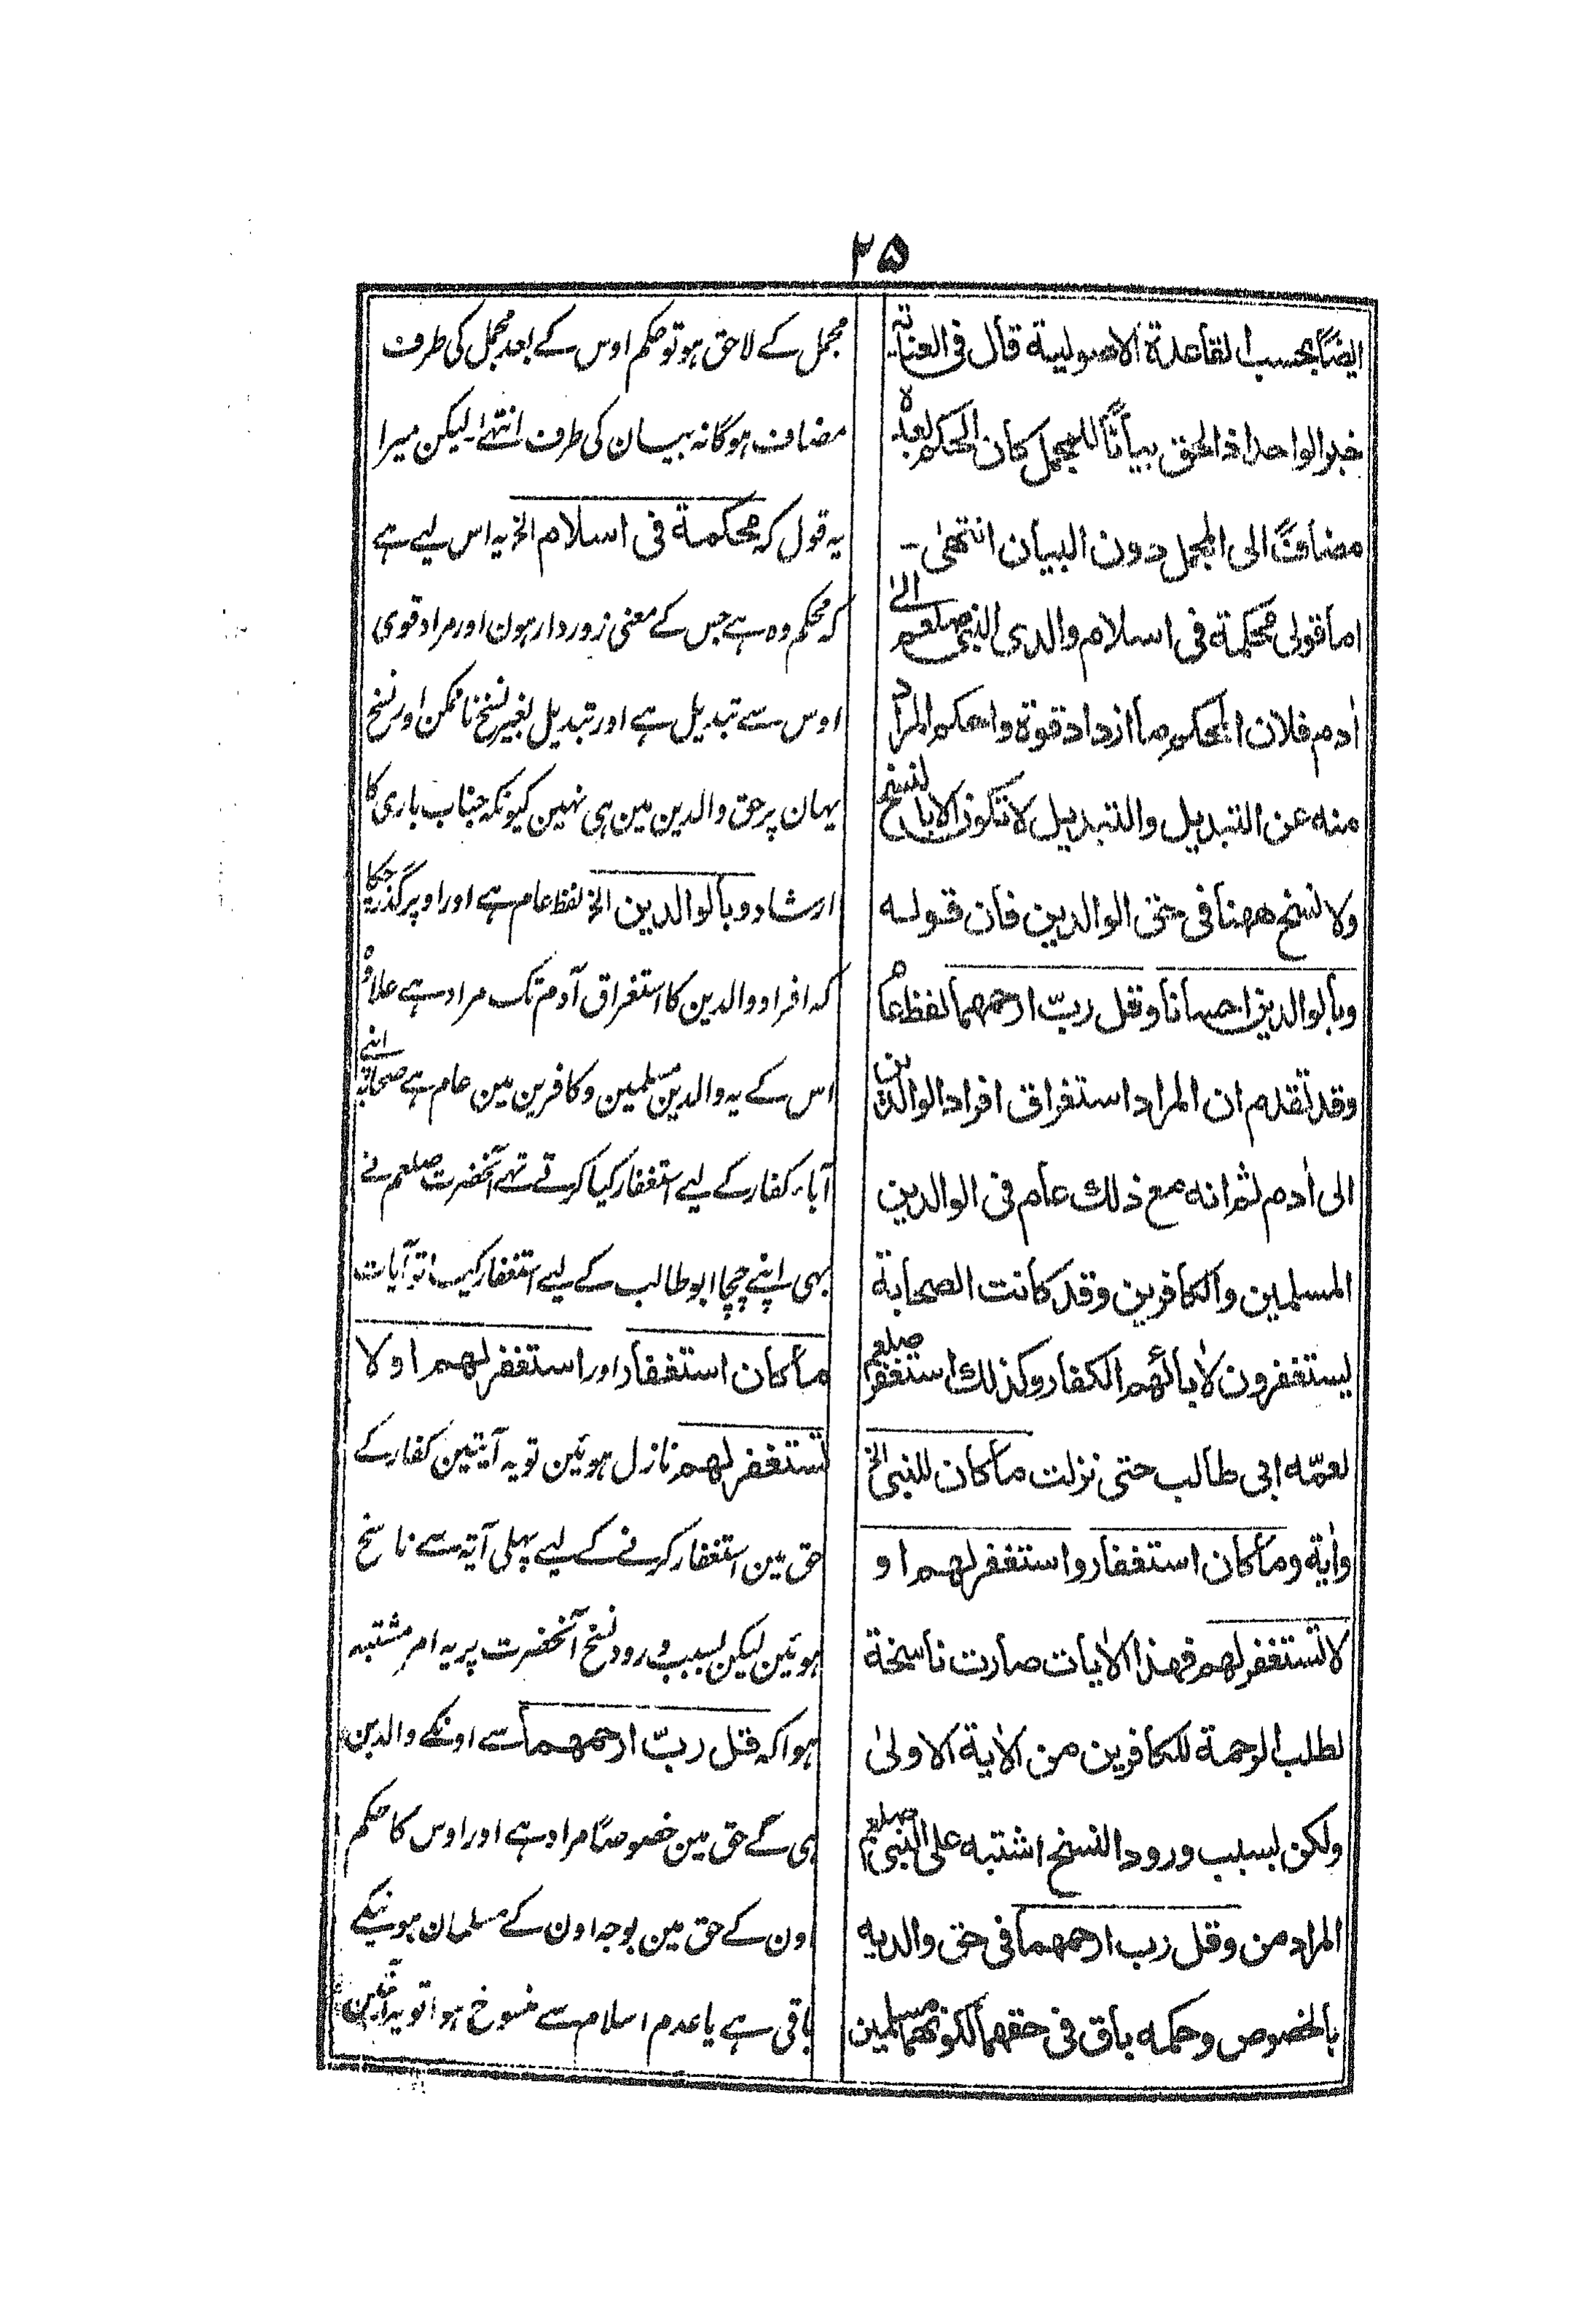 ۲۵
ایضًا بحسب القاعدة الاصولیة قال فی العنایة
خبر الواحد اذا لحق بیانًا للمجمل کان الحکم بعدہ
مضافًا الی المجمل دون البیان انتھٰی -
اما قولی محکمة فی اسلام والدی النبی صلعم الیٰ
اٰدم فلان المحکم ما ازداد قوة واحکم المراد
منه عن التبدیل والتبدیل لا تکون الا بالنسخ
ولا نسخ ھھنا فی حق الوالدین فان قولہ
وبالوالدین احسانا وقل ربّ ارحمھما لفظ عام
وقد تقدم ان المراد استغراق افراد الوالدین
الی اٰدم ثم انه مع ذلك عام فی الوالدین
المسلمین والکافرین وقد کانت الصحابة
یستغفرون لاٰبائھم الکفار وکذلك استغفر صلعم
لعمّه ابی طالب حتی نزلت ما کان للنبی الخ
واٰیة وما کان استغفار واستغفر لھم او
لا تستغفر لھم فھذا الاٰیات صارت ناسخة
لطلب الرحمة للکافرین من الاٰیة الاولیٰ
ولکن بسبب ورود النسخ اشتبه علی النبی صلعم
المراد من وقل رب ارحمھما فی حق والدیه
بالخصوص وحکمه باق فی حقھما لکونھما مسلمین
مجمل کے لاحق ہو تو حکم اوس کے بعد مجمل کی طرف
مضاف ہوگا نہ بیان کی طرف انتہے۔ لیکن میرا
یہ قول کہ محکمة فی اسلام الخ یہ اس لیے ہے
کہ محکم وہ ہے جس کے معنی زوردار ہون اور مراد قوی
اوس سے تبدیل ہے اور تبدیل بغیر نسخ ناممکن اور نسخ
یہان پر حق والدین مین ہی نہین کیونکہ جناب باری کا
ارشاد وبالوالدین الخ لفظ عام ہے اور اوپر گذر چکا
کہ افراد والدین کا استغراق آدم تک مراد ہے علاوہ
اس کے یہ والدین مسلمین و کافرین مین عام ہے صحابہ اپنے
آباء کفار کے لیے استغفار کیا کرتے تھے آنحضرت صلعم نے
بھی اپنے چچا ابو طالب کے لیے استغفار کیا تو آیات
ما کان استغفار اور استغفر لھم او لا
تستغفر لھم نازل ہوئین تو یہ آیتین کفار کے
حق مین استغفار کرنے کے لیے پہلی آیۃ سے ناسخ
ہوئین لیکن بسبب ورود نسخ آنحضرت پر یہ امر مشتبہ
ہوا کہ قل ربّ ارحمھما سے اونکے والدین
ہی کے حق مین خصوصًا مراد ہے اور اوس کا حکم
اون کے حق مین بوجہ اون کے مسلمان ہونیکے
باقی ہے یا عدم اسلام سے منسوخ ہوا تو یہ